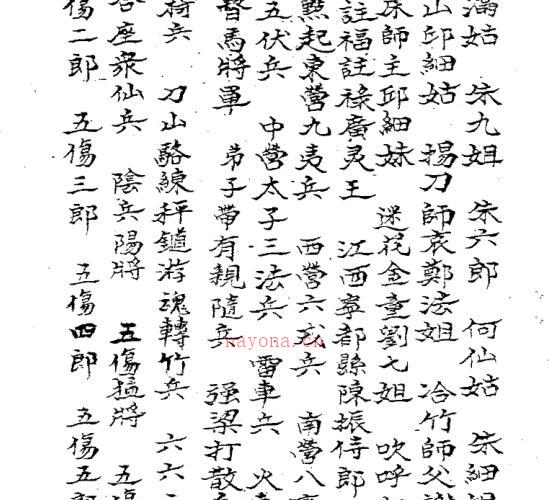 滿姑 朱九姐 朱六郎 何仙姑 朱細
山邱細姑 揚刀師哀鄭法姐 冷竹師父
床師主邱細妹 迷花金童劉七姐 吹呼
註福註祿廣灵王 江西寧都縣陳振侍郎
點起東營九夷兵 西營六戎兵 南營八
五伏兵 中營太子三法兵 雷車兵 火
督馬將軍 弟子帶有親隨兵 强梁打散
椅兵 刀山駱練秤鎚游魂轉竹兵 六六
各座衆仙兵 陰兵陽將 五傷猛將 五傷
傷二郎 五傷三郎 五傷四郎 五傷五郎
nayona.cn